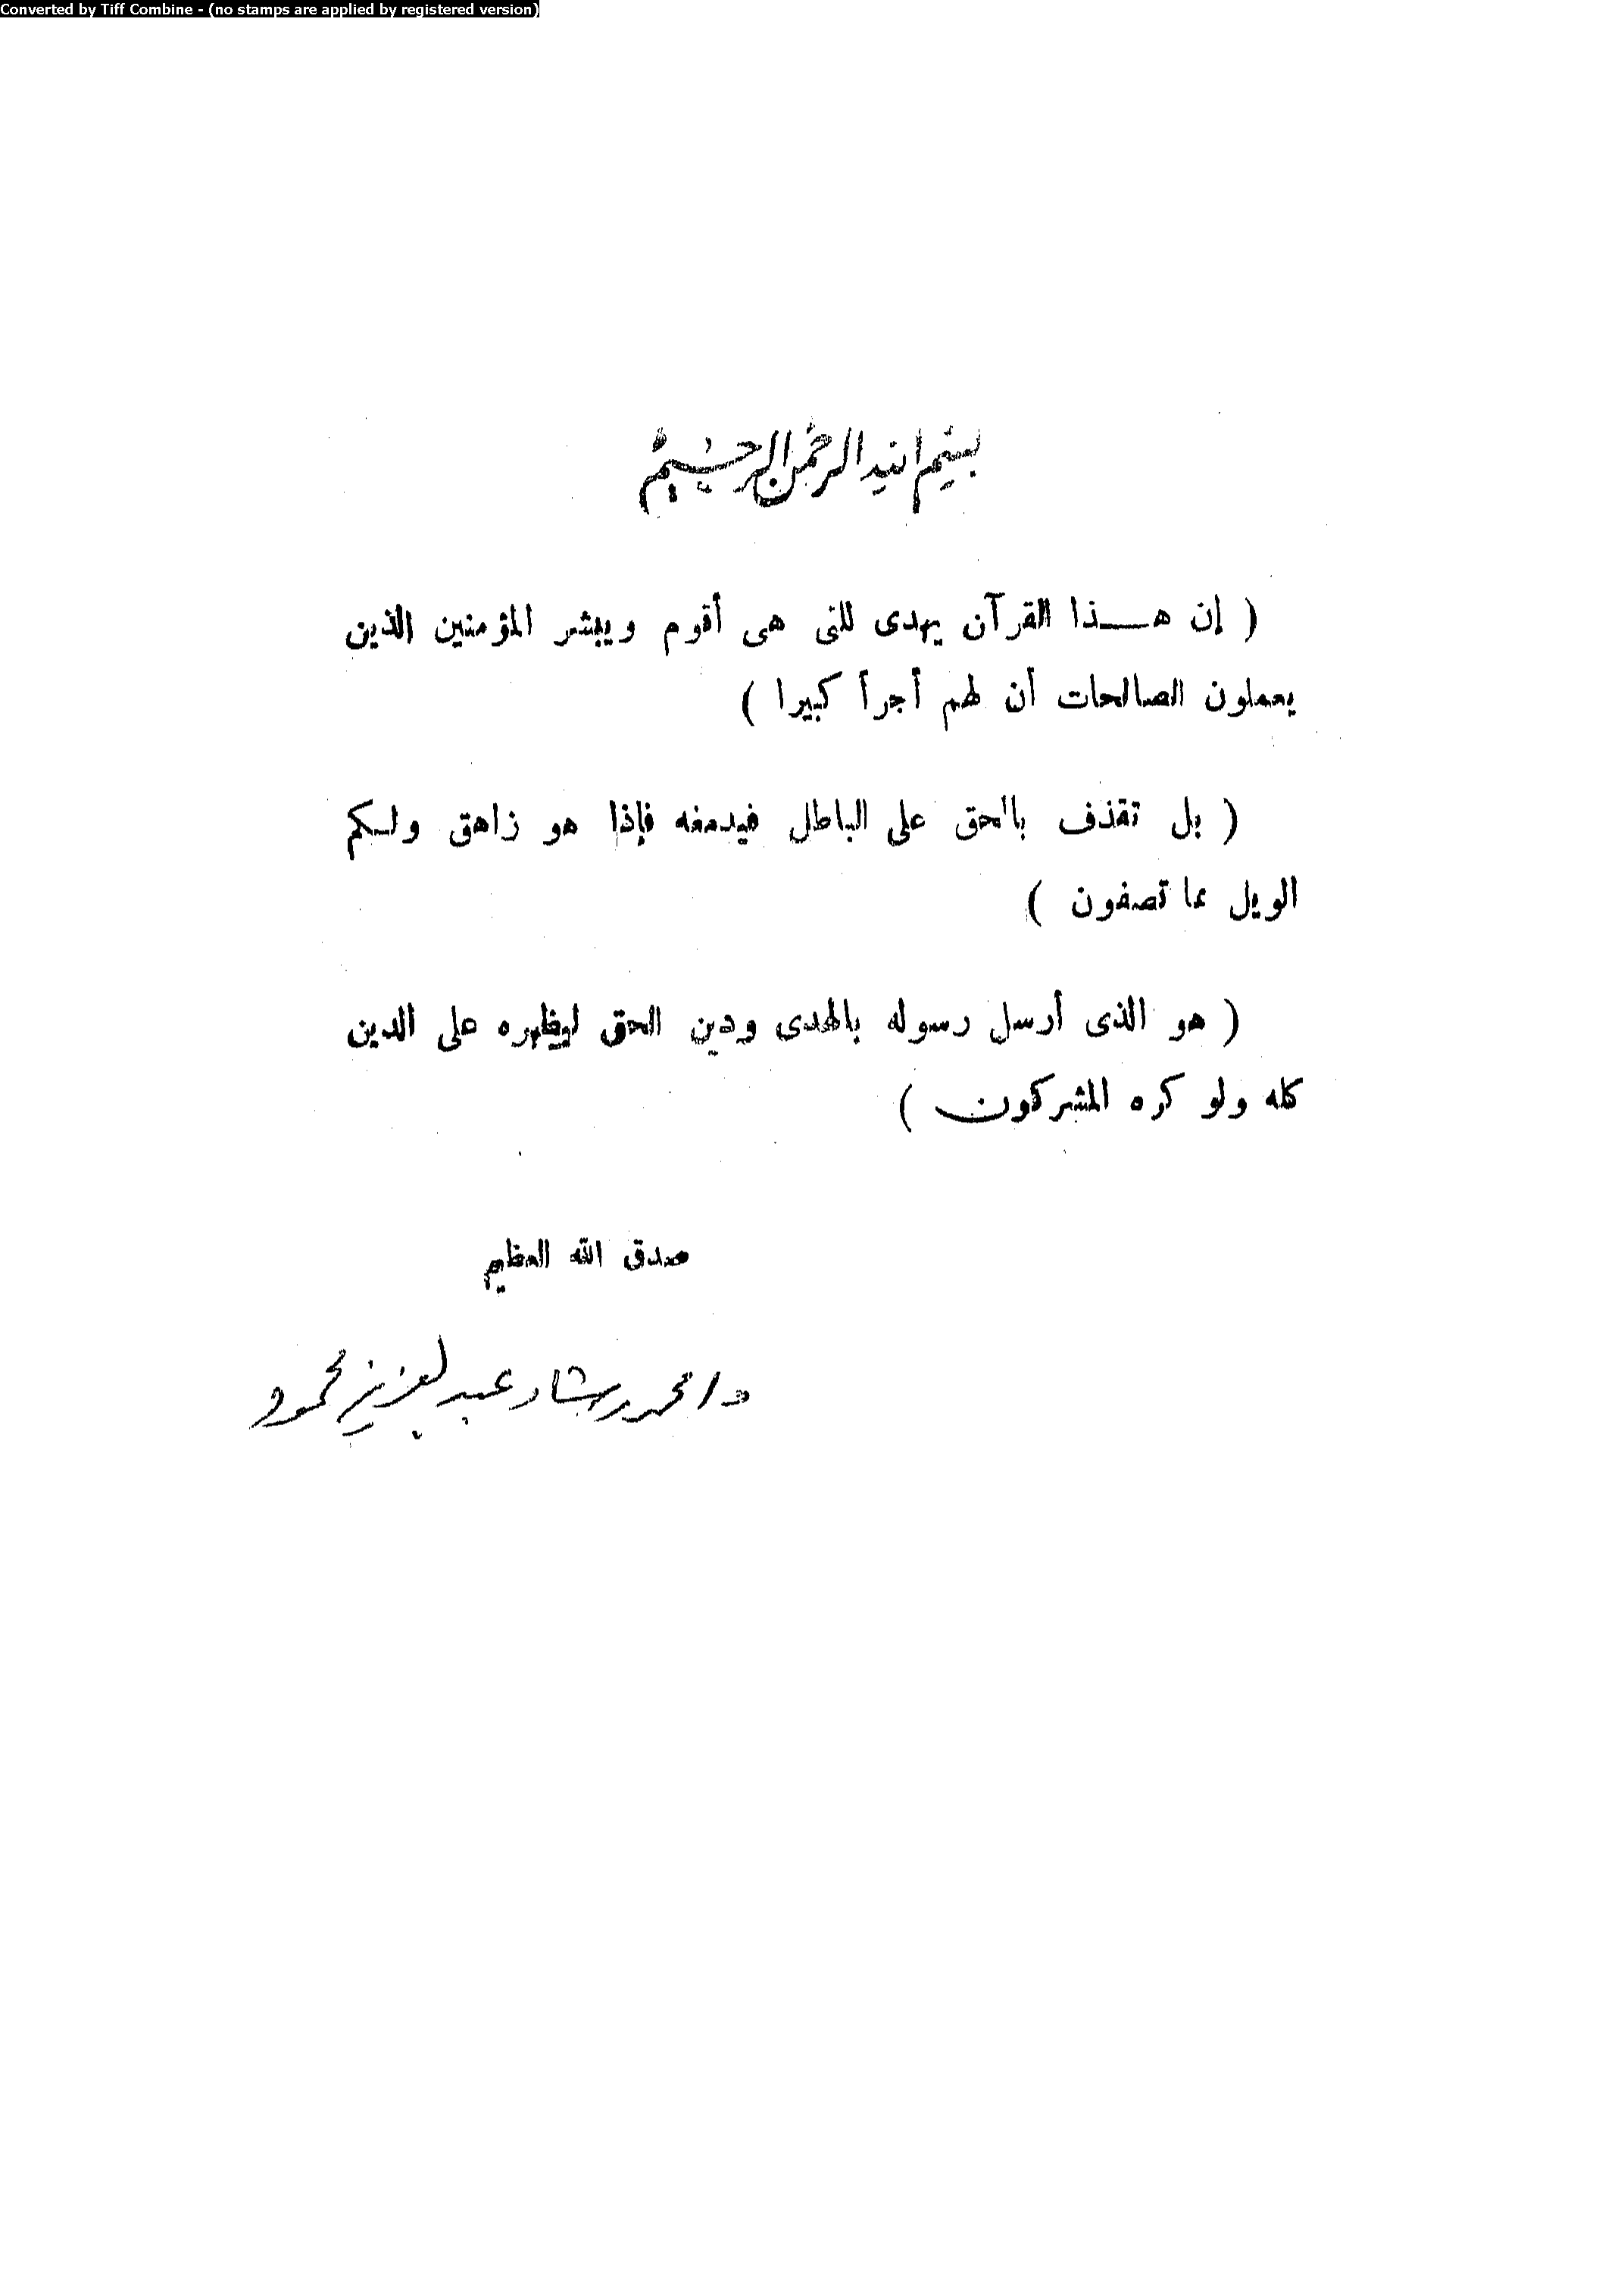 Converted by Tiff Combine - (no stamps are applied by registered version)
بسم الله الرحمن الرحيم
( إن هـــذا القرآن يهدى للتى هى أقوم ويبشر المؤمنين الذين
يعملون الصالحات أن لهم أجرأ كبيرا )
( بل تقذف بالحق على الباطل فيدمغه فإذا هو زاهق ولكم
الويل مما تصفون )
( هو الذى أرسل رسوله بالهدى ودين الحق ليظهره على الدين
كله ولو كره المشركون )
صدق الله العظيم
د/ محمد رشاد عبد العزيز محمود